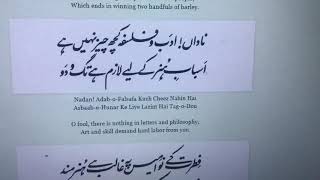 Which ends in winning two handfuls of barley.
ناداں! ادب و فلسفہ کچھ چیز نہیں ہے
اسبابِ ہنر کے لیے لازم ہے تگ و دَو
Nadan! Adab-o-Falsafa Kuch Cheez Nahin Hai
Asbaab-e-Hunar Ke Liye Lazim Hai Tag-o-Dou
O fool, there is nothing in letters and philosophy,
Art and skill demand hard labor from you.
فطرت کے نوامیس پہ غالب ہے ہنر مند